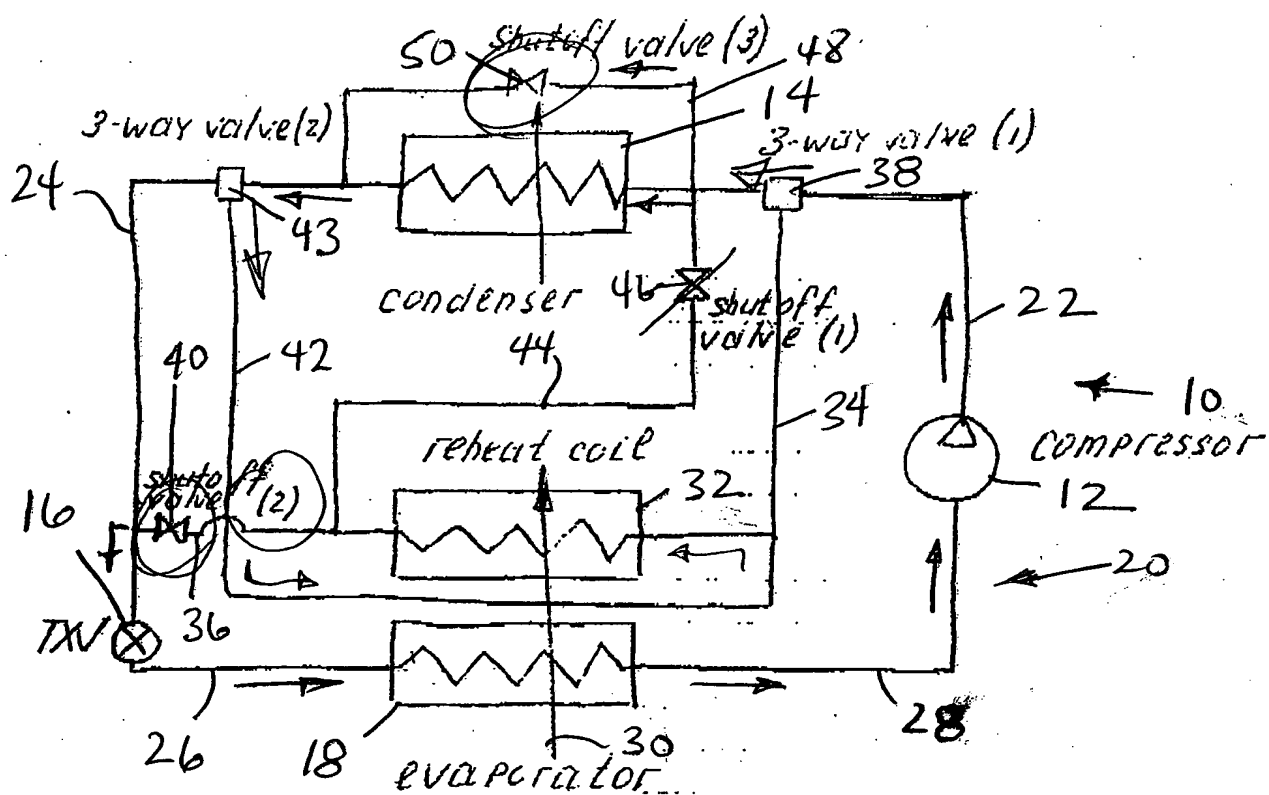 50
shutoff valve (3)
48
14
3-way valve (2)
3-way valve (1)
24
38
43
condenser
46
shutoff
valve (1)
22
40
42
44
34
10
compressor
reheat coil
shutoff
valve
(2)
32
16
12
20
TXV
36
28
26
18
30
evaporator